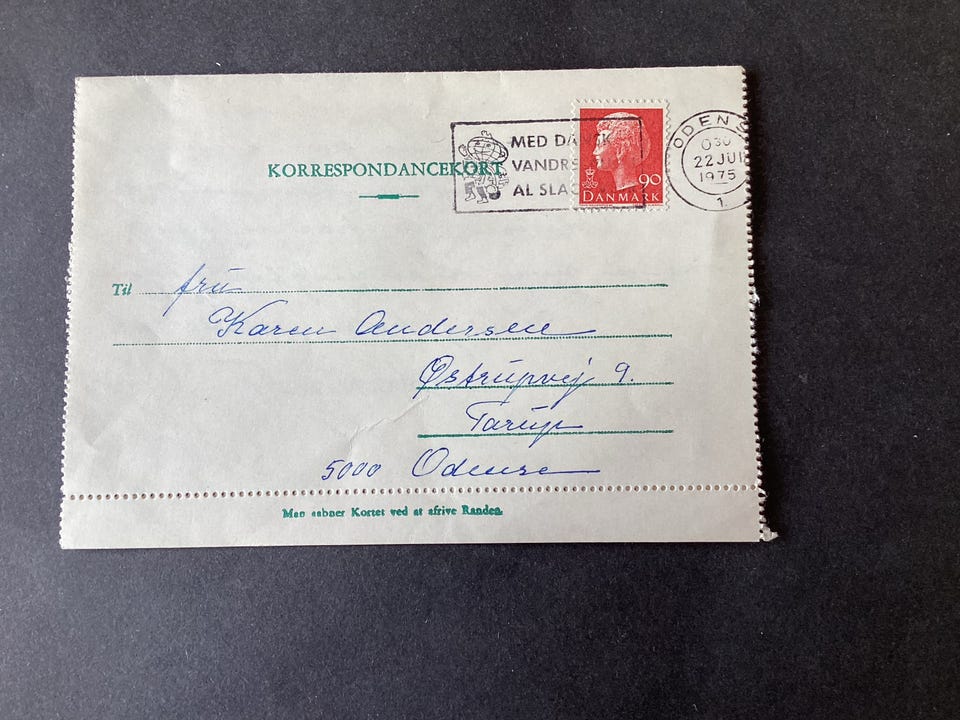 KORRESPONDANCEKORT
MED DANSK
VANDRE
AL SLAG
90
DANMARK
ODENS
030
22 JU
1975
1.
Til fru
Karen Andersen
Østrupvej 9.
Tarup
5000 Odense
Man aabner Kortet ved at afrive Randen.